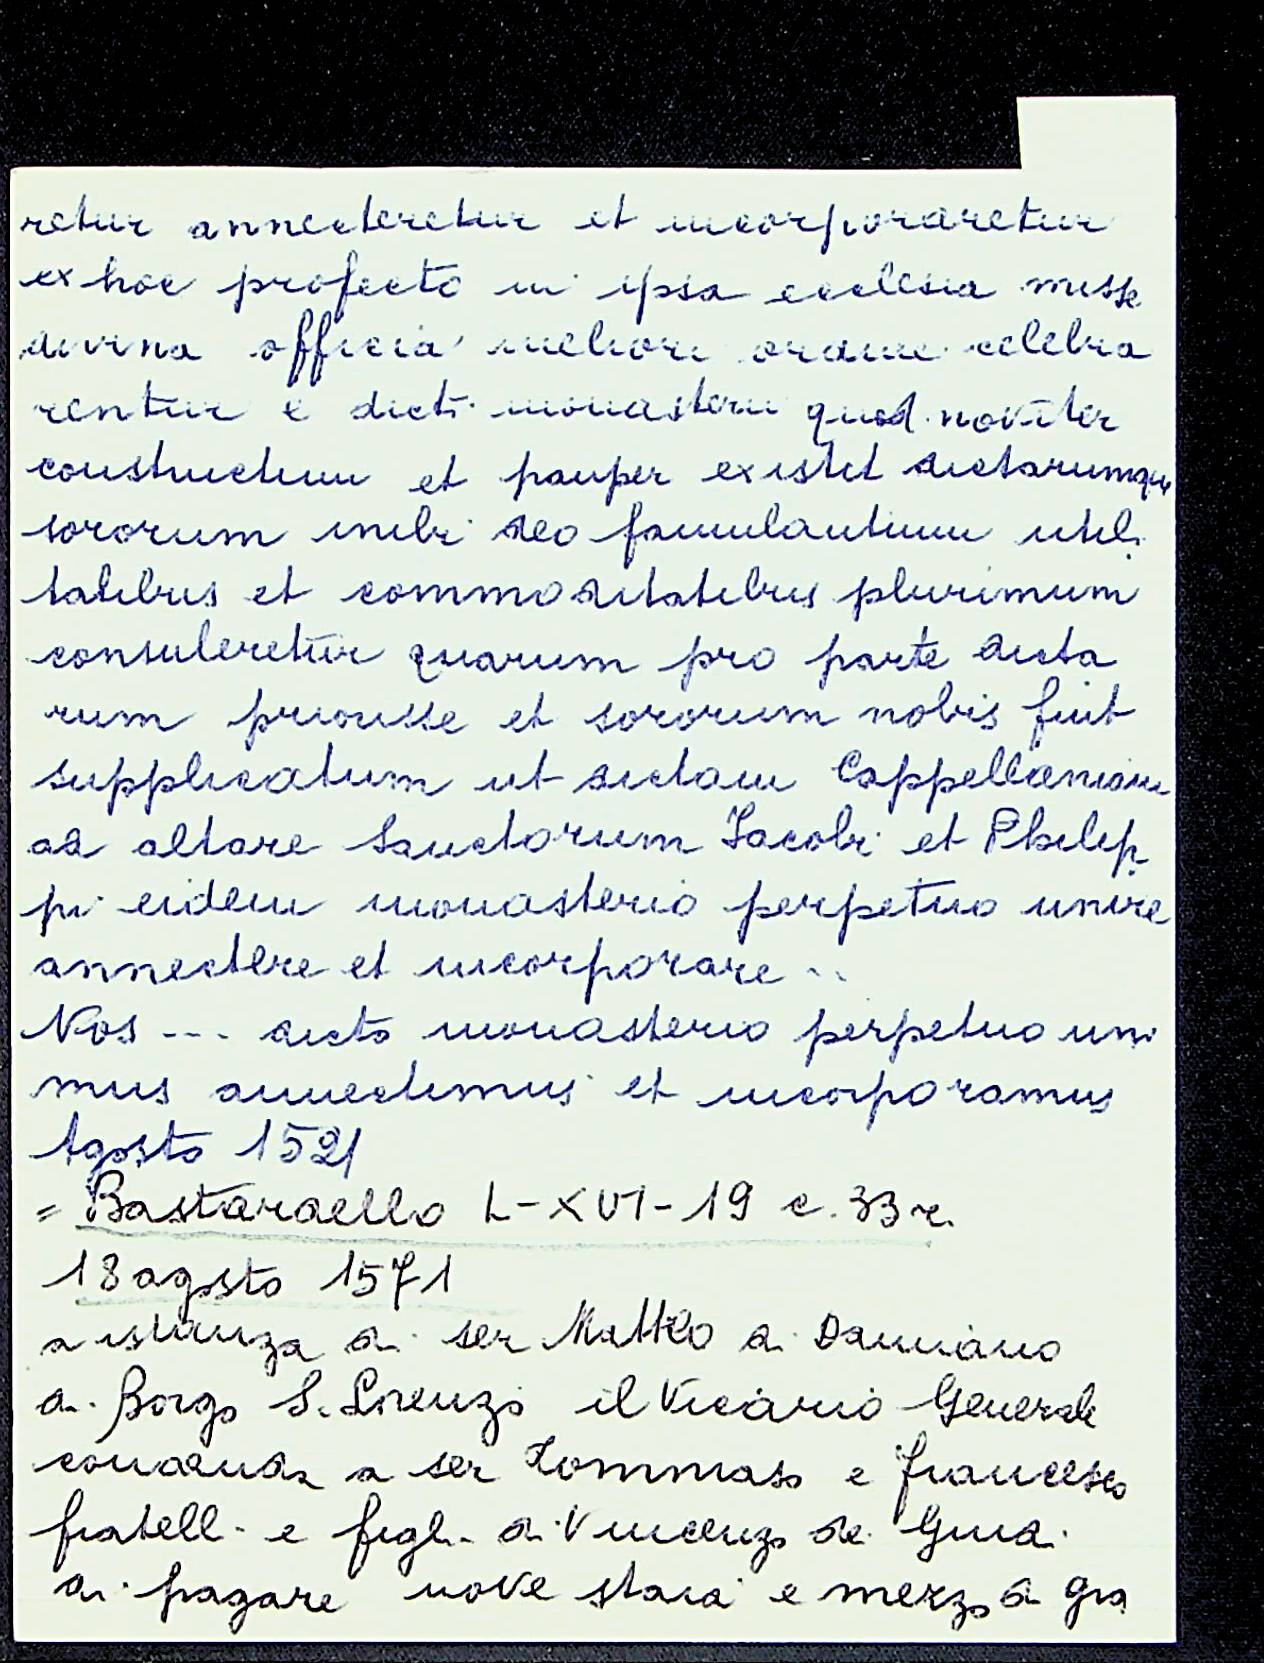 retur annecteretur et incorporaretur
ex hoc profecto in ipsa ecclesia misse
divina officia meliori ordine celebra
rentur e dicti monasterii quod noviter
constructum et pauper existit dictarumque
sororum inibi deo famulantium utili
tatibus et commoditatibus plurimum
consuleretur quarum pro parte dicta
rum priorisse et sororum nobis fuit
supplicatum ut dictam Cappellaniam
ad altare Sanctorum Jacobi et Philip
pi eidem monasterio perpetuo unire
annectere et incorporare ..
Nos --- dicto monasterio perpetuo uni
mus annectimus et incorporamus
Agosto 1521
= Bastardello L-XVI-19 c. 33 r.
18 agosto 1571
a istanza di ser Matteo di Damiano
di Borgo S. Lorenzo il Vicario Generale
condanna a ser Tommaso e Francesco
fratelli e figli di Vincenzo de
di pagare nove staia e mezzo di gra